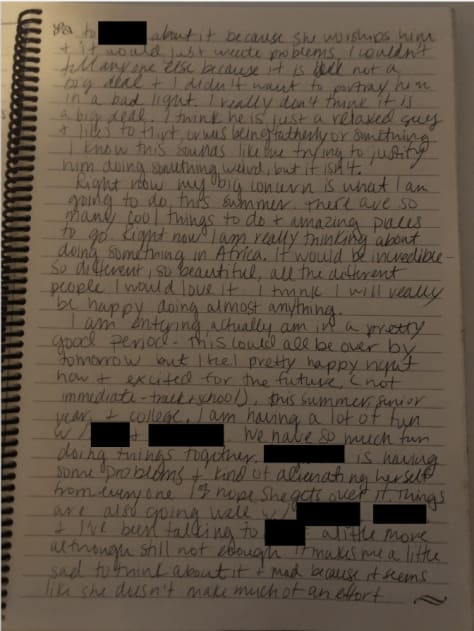 to about it because she worships him
+ it would just create problems. I couldn't
tell anyone else because it is not a
big deal + I didn't want to portray him
in a bad light. I really don't think it is
a big deal. I think he is just a relaxed guy
+ likes to flirt, or was being fatherly or something
I know this sounds like me trying to justify
him doing something weird, but it isn't.
Right now my big concern is what I am
going to do this summer. There are so
many cool things to do + amazing places
to go. Right now I am really thinking about
doing something in Africa. It would be incredible -
so different, so beautiful, all the different
people I would love it. I think I will really
be happy doing almost anything.
I am entering, actually am in a pretty
good period - this could all be over by
tomorrow but I feel pretty happy right
now + excited for the future, (not
immediate - track + school), this summer, junior
year, + college. I am having a lot of fun
w/ + . We have so much fun
doing things together. is having
some problems + kind of alienating herself
from everyone I hope she gets over it. Things
are also going well w/
+ I've been talking to a little more
although still not enough it makes me a little
sad to think about it + mad because it seems
like she doesn't make much of an effort